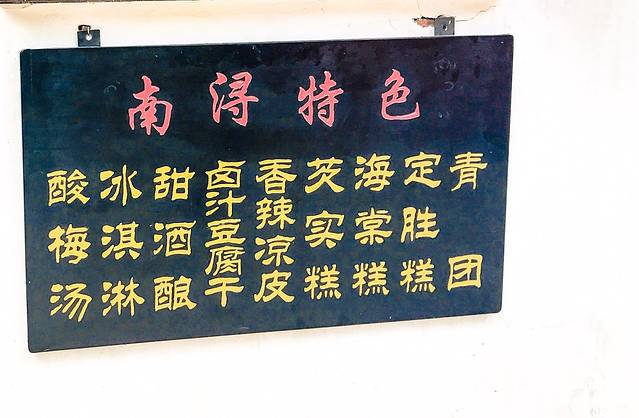 南浔特色
青团
定胜糕
海棠糕
芡实糕
香辣凉皮
卤汁豆腐干
甜酒酿
冰淇淋
酸梅汤